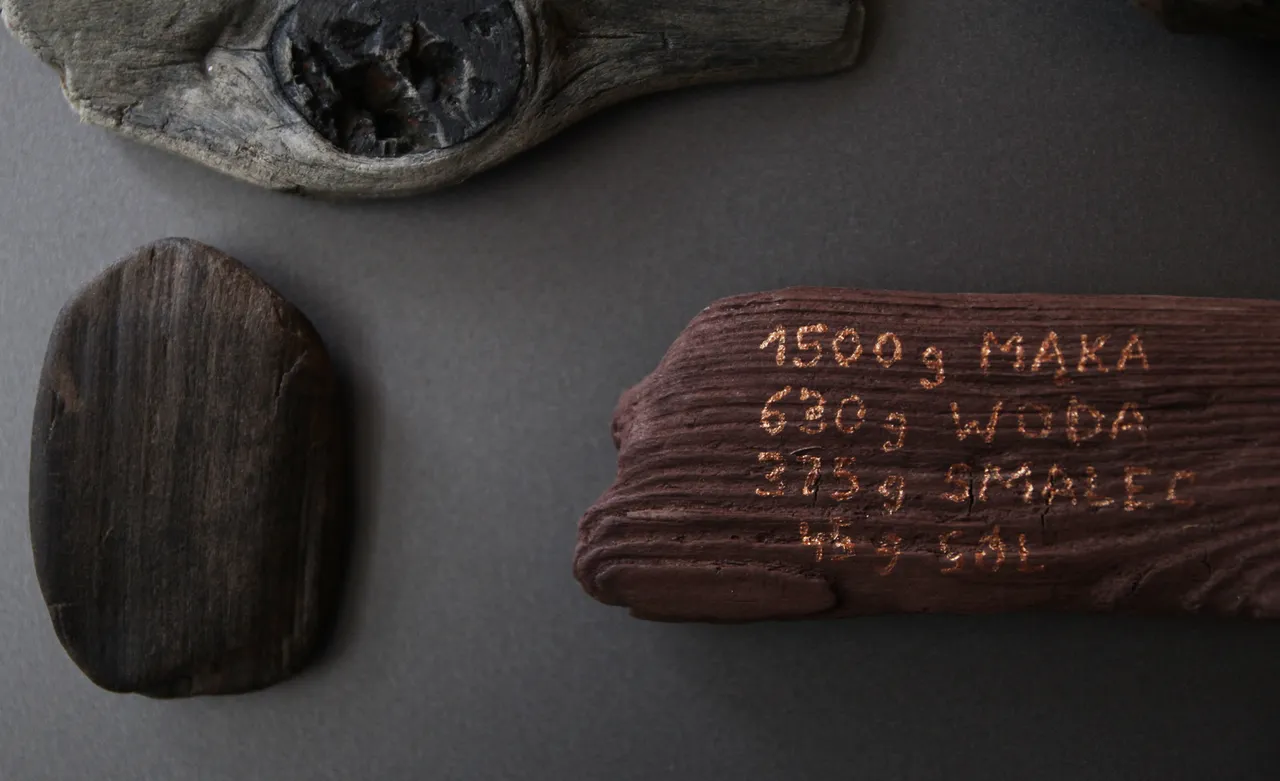 1500g MĄKA
630g WODA
375g SMALEC
45g SÓL